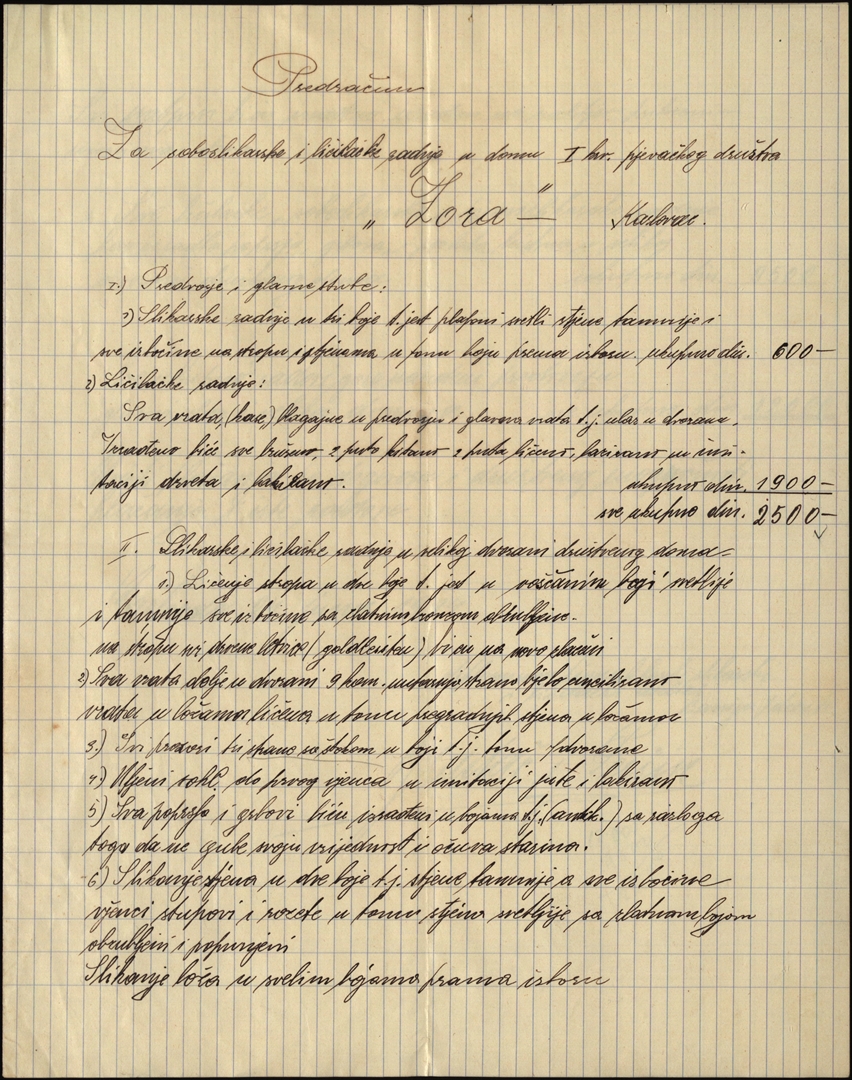 Predračun
Za soboslikarske i ličilačke radnje u domu I hrv. pjevačkog društva
„ Zora — " Karlovac.
I.) Predvorje i glavne stube:
1) Slikarske radnje u tri boje t. jest plafoni svetli stjene tamnije i
sve istočine na stropu i stjenama u tonu boju prema izboru. ukupno din. 600—
2) Ličilačke radnje:
Sva vrata, (kase) blagajne u predvorju i glavna vrata t.j. ulaz u dvoranu.
Izrađeno biće sve brušeno, 2 puta kitano 2 puta ličeno, lazirano, u imi-
taciji drveta i lakirano. ukupno din. 1900—
sve ukupno din. 2500—
II. Slikarske i ličilačke radnje u velikoj dvorani društvenog doma—
1.) Ličenje stropa u dve boje t. jest u voščanim boji svetlije
i tamnije sve iztočine sa zlatnim bronzom obrubljene.
na stropu svi drvene letvice (goldleistu) bit će na novo zlaćeni
2) Sva vrata dolje u dvorani 9 kom. unutarnjo strano bjelo emeilirano
vrata u ložama ličena u tonu stjena u ložama
3.) Svi prozori tri strane sa štokom u boji t.j. tonu dvorane
4.) Uljeni sokl. do prvog vjenca u imitaciji jute i lakirano
5) Sva poprsja i grbovi biće izrađeni u bojama t.j. (antik.) sa razloga
toga da ne gube svoju vrijednost i očuva starina.
6) Slikanje stjena u dve boje t.j. stjene tamnije a sve isbočine
vjenci stupovi i rozete u tonu stjena svetlije sa zlatnom bojom
obrubljeni i popunjeni
Slikanje loža u svelim bojama prama izboru